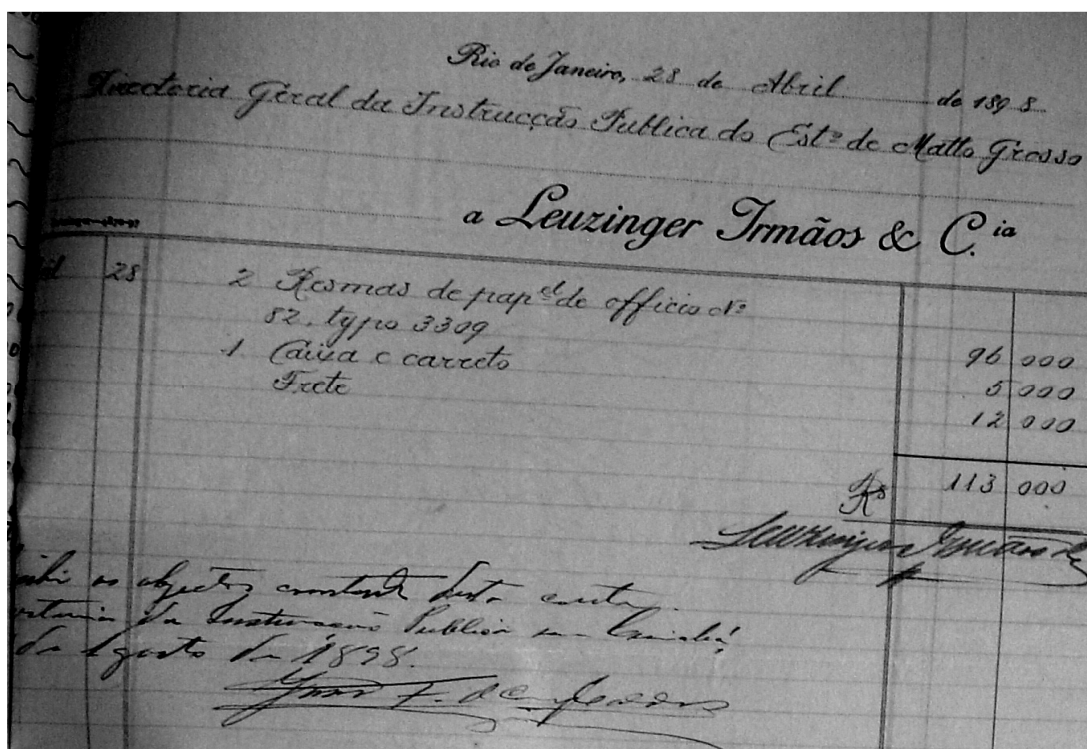 Rio de Janeiro, 28 de Abril de 1898
Directoria Geral da Instrucção Publica do Estº de Matto Grosso
a Leuzinger Irmãos & C.ia
28 2 Resmas de papel de officio Nº
82. typo 3309 96 000
1 Caixa e carreto 5 000
Frete 12 000
Rs 113 000
Leuzinger Irmãos
os objectos constante desta conta.
da Instrucção Publica em Cuiabá,
de Agosto de 1898.